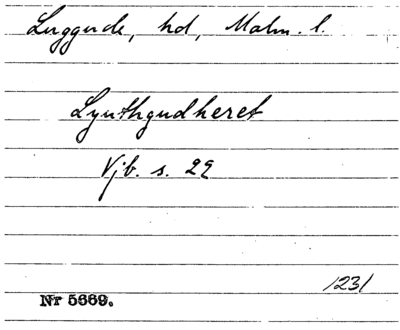 Luggude, hd, Malm. l.
Lyuthgudheret
Vjb. s. 29
1231
Nr 5669.